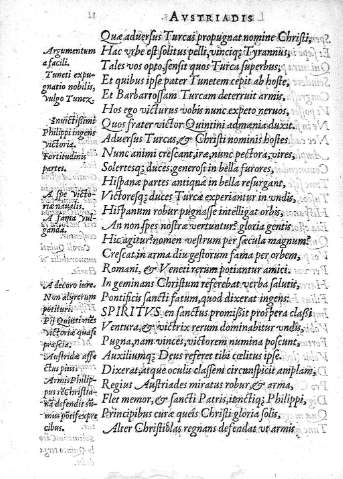 AVSTRIADIS
Quæ adversus Turcas propugnat nomine Christi,
Hac vrbe est solitus pelli, vinciq; Tyrannus,
Tales vos opto, sensit quos Turca superbus;
Et quibus ipse pater Tunetem cepit ab hoste,
Et Barbarossam Turcam deterruit armis,
Hos ego victurus vobis nunc expeto neruos,
Quos frater victor Quintini ad mœnia duxit.
Aduersus Turcas, & Christi nominis hostes
Nunc animi crescant, iræ, nunc pectora, vires,
Solertesq; duces, generosi in bella furores,
Hispanæ partes antiquæ in bella resurgant,
Victoresq; duces Turcæ experiantur in vndis,
Hispanum robur pugnasse intelligat orbis,
An non spes nostræ vertuntur? gloria gentis
Hic agitur? nomen vestrum per sæcula magnum?
Crescat, in arma diu gestorum fama per orbem,
Romani, & Veneti rerum potiantur amici.
In geminans Christum referebat verba salutis,
Pontificis sancti fatum, quod dixerat ingens:
SPIRITVS en sanctus promisit prospera classi
Ventura, & victrix rerum dominabitur vndis,
Pugna, nam vinces, victorem numina poscunt,
Auxiliumq; Deus referet tibi cœlitus ipse.
Dixerat, atque oculis classem circunspicit amplam,
Regius Austriades miratus robur & arma,
Flet memor, & sancti Patris, iunctiq; Philippi,
Principibus curæ queis Christi gloria solis,
Alter Christicolas regnans defendat vt armis
Argumentum
a facili.
Tuneti expu-
gnatio nobilis,
vulgo Tunex.
Inuictissimi
Philippi ingens
victoria.
Fortitudinis
partes.
A spe victo
riæ naualis.
A fama vul
ganda.
A decoro iure.
Non abs re rerum
potituri.
Pij Quinti
victoriæ quasi
præscia.
Austriadæ affe
ctus pius.
Armis Philip-
pus Christia-
nos defendit
cibus.